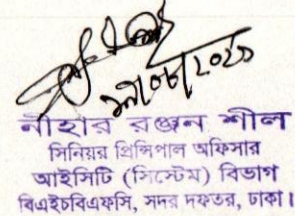 নীহার রঞ্জন শীল
সিনিয়র প্রিন্সিপাল অফিসার
আইসিটি (সিস্টেম) বিভাগ
বিএইচবিএফসি, সদর দফতর, ঢাকা।